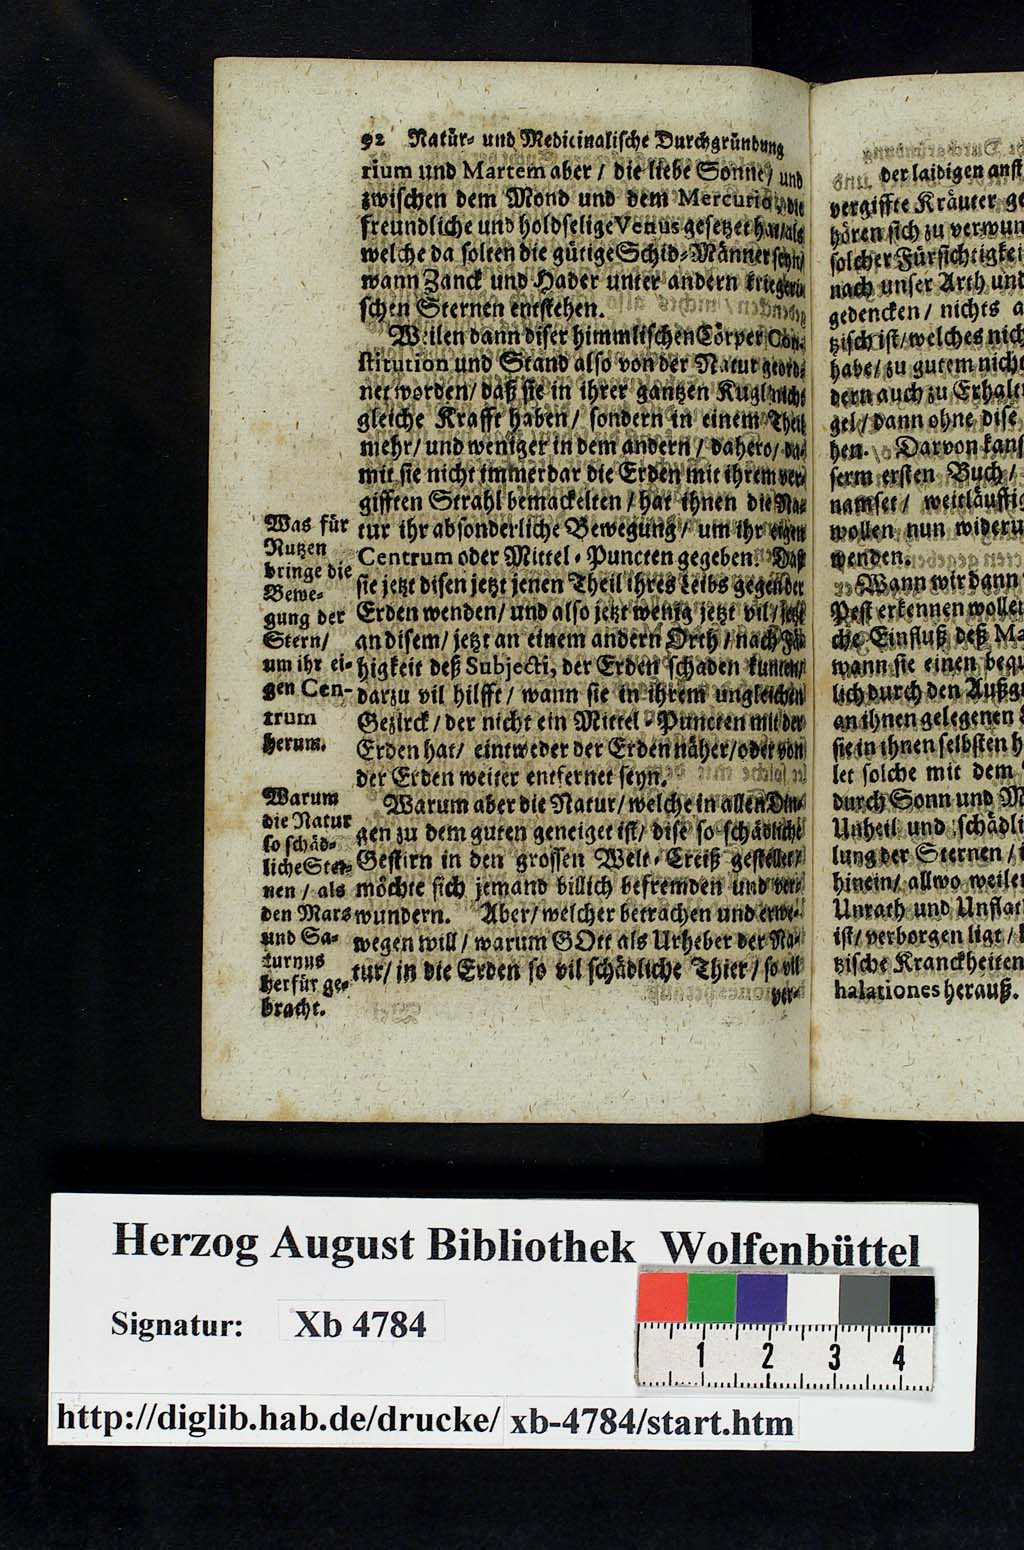 92 Natür- und Medicinalische Durchgründung
rium und Martem aber / die liebe Sonne / und
zwischen dem Mond und dem Mercurio, die
freundliche und holdselige Venus gesetzet hat/als
welche da solten die gütige Schid-Männer seyn/
wann Zanck und Hader unter andern kriegeri-
schen Sternen entstehen.
Weilen dann diser himmlischen Cörper Con-
stitution und Stand also von der Natur geord-
net worden/ daß sie in ihrer gantzen Kugl nicht
gleiche Krafft haben/ sondern in einem Theil
mehr/ und weniger in dem andern / dahero/ da-
mit sie nicht immerdar die Erden mit ihrem ver-
gifften Strahl bemackelten / hat ihnen die Na-
tur ihr absonderliche Bewegung/ um ihr eigen
Centrum oder Mittel-Puncten gegeben. Daß
sie jetzt disen jetzt jenen Theil ihres Leibs gegen der
Erden wenden/ und also jetzt wenig jetzt vil / jetzt
an disem/ jetzt an einem andern Orth / nach Fä-
higkeit deß Subjecti, der Erden schaden kunnen/
darzu vil hilfft / wann sie in ihrem ungleichen
Gezirck / der nicht ein Mittel-Puncten mit der
Erden hat/ eintweder der Erden näher/oder von
der Erden weiter entfernet seyn.
Warum aber die Natur/ welche in allen Din-
gen zu dem guten geneiget ist/ dise so schädliche
Gestirn in den grossen Welt-Creiß gestellet/
möchte sich jemand billich befremden und ver-
wundern. Aber/ welcher betrachen und erwe-
wegen will / warum GOtt als Urheber der Na-
tur/ in die Erden so vil schädliche Thier / so vil
ver-
Was für
Nutzen
bringe die
Bewe-
gung der
Stern/
um ihr ei-
gen Cen-
trum
herum.
Warum
die Natur
so schäd-
liche Ster-
nen / als
den Mars
und Sa-
turnus
herfür ge-
bracht.
der laidigen anst
vergiffte Kräuter ge
hören sich zu verwun
solcher Fürsichtigkei
nach unser Arth und
gedencken / nichts a
tzisch ist/ welches nich
habe/ zu gutem nicht
dern auch zu Erhalt
gel / dann ohne dise
hen. Darvon kanst
serm ersten Buch /
namset / weitläuftig
wollen nun wideru
wenden.
Wann wir dann
Pest erkennen wollen
che Einfluß deß Ma
wann sie einen bequ
lich durch den Außgu
an ihnen gelegenen
sie in ihnen selbsten h
let solche mit dem
durch Sonn und M
Unheil und schädli
lung der Sternen / i
hinein/ allwo weilen
Unrath und Unflat
ist/ verborgen ligt /
tzische Kranckheiten
halationes herauß.
Herzog August Bibliothek Wolfenbüttel
Signatur: Xb 4784
1 2 3 4
http://diglib.hab.de/drucke/ xb-4784/start.htm